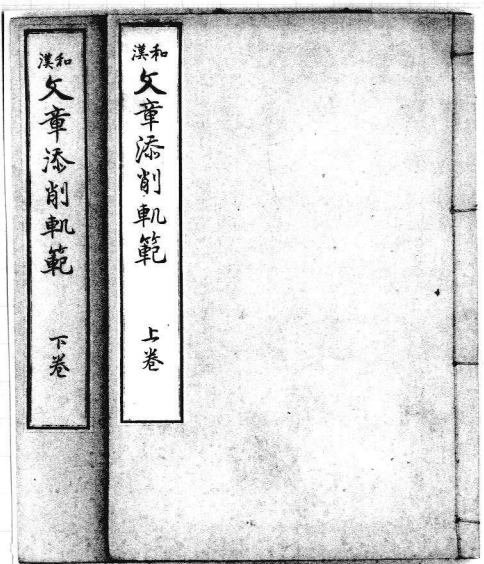 和漢
文章添削軌範
上卷
和漢
文章添削軌範
下卷